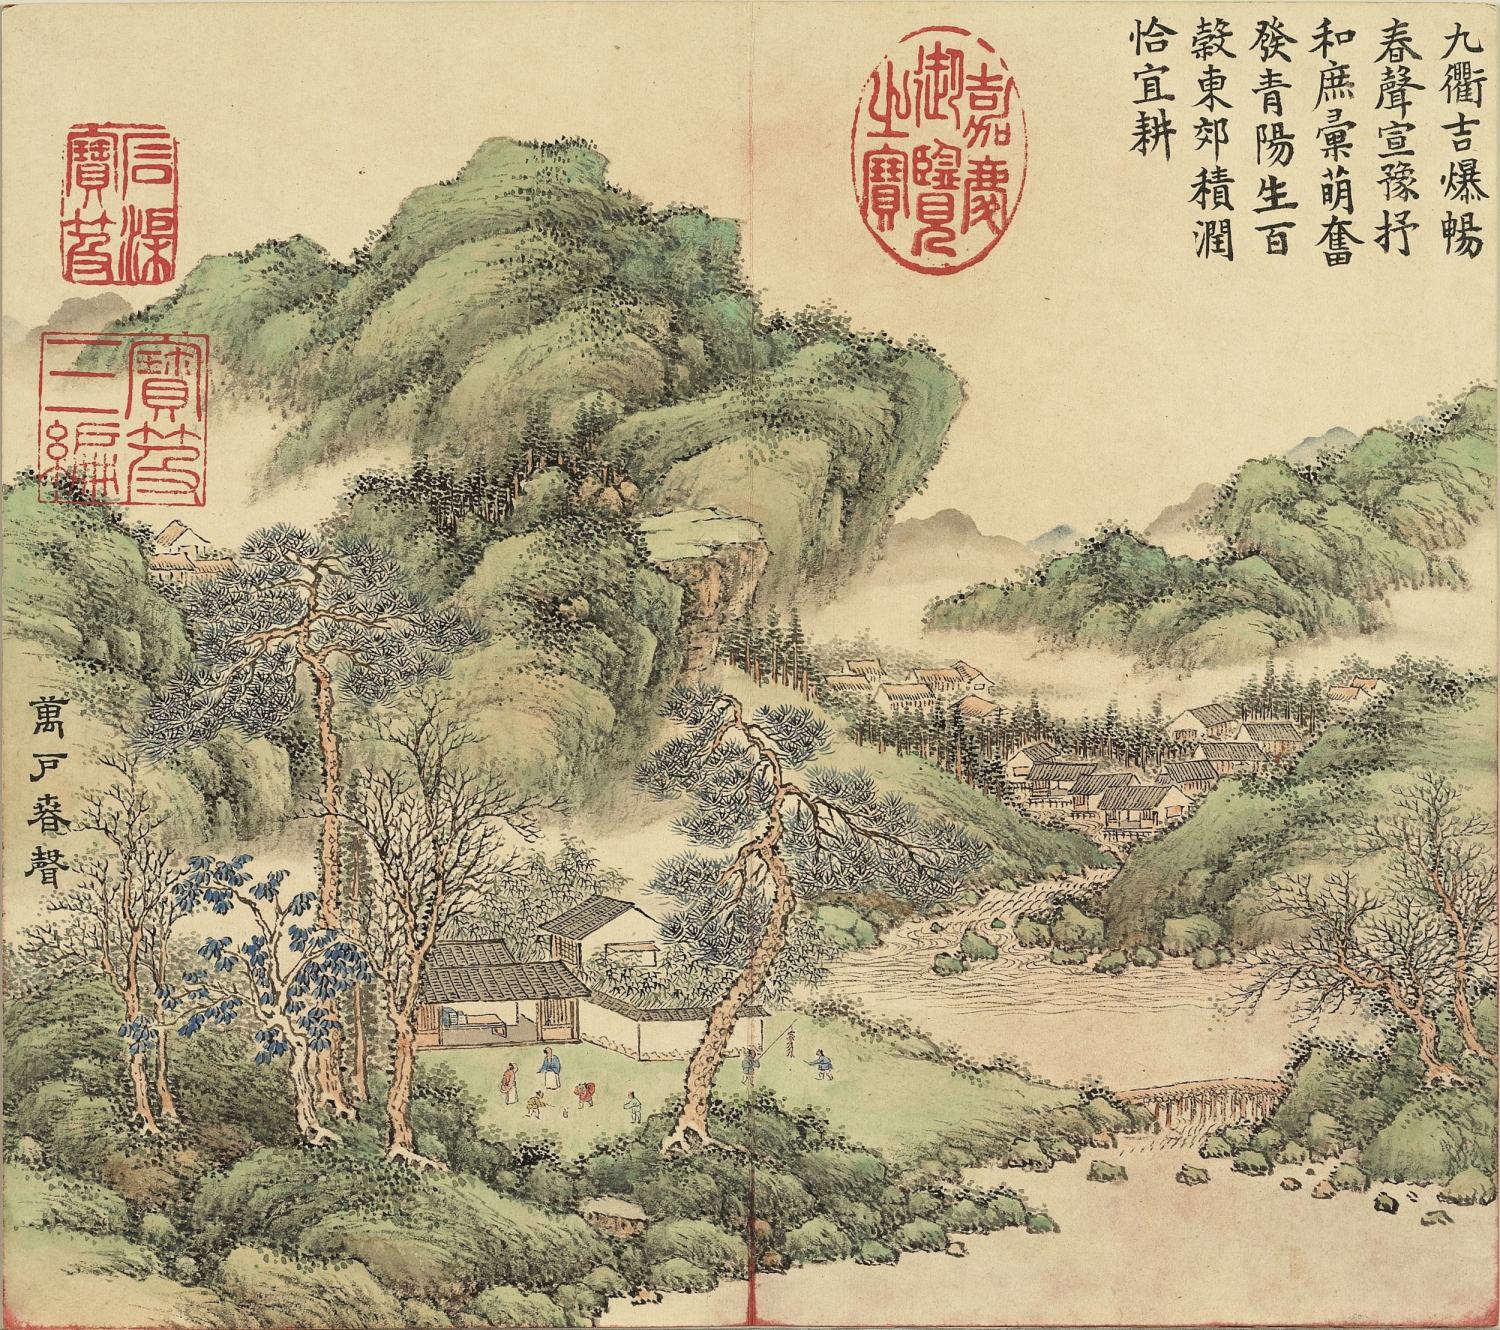 九衢吉爆暢
春聲宣豫抒
和庶彙萌奮
發青陽生百
穀東郊積潤
恰宜耕
嘉慶
御覽
之寶
寶笈
三編
萬戶春聲